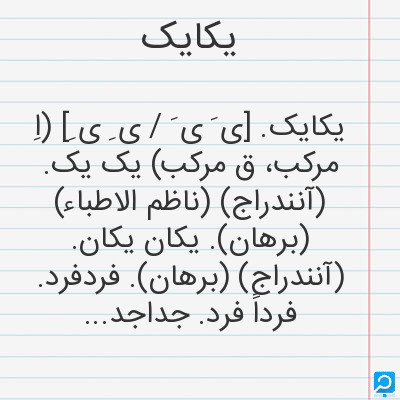 یکایک
یکایک. [ی َ ی َ / ی ِ ی ِ] (اِ
مرکب، ق مرکب) یک یک.
(آنندراج) (ناظم الاطباء)
(برهان). یکان یکان.
(آنندراج) (برهان). فردفرد.
فرداً فرد. جداجد...